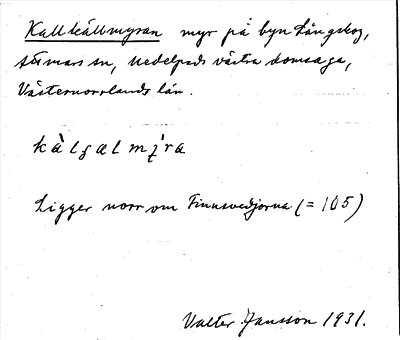 Kallkällmyran myr på byn Långskog,
Stömars sn, Medelpads västra domsaga,
Västernorrlands län.
kàlʂælmýra
Ligger norr om Finnsvedjorna (= 105)
Valter Jansson 1931.